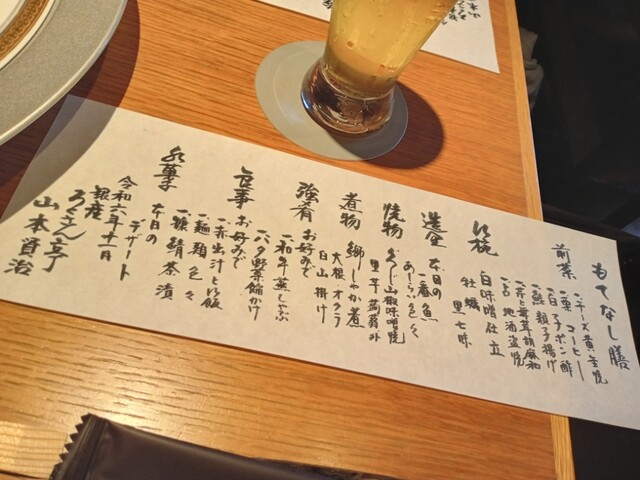 もてなし膳
前菜
一、チーズ黄金焼
一、栗 コーヒー
一、白子ポン酢
一、鮭親子揚げ
一、芹と舞茸胡麻和
一、乃し地酒塩焼
白味噌仕立
牡蠣 黒七味
造里
本日の
一番魚
あしらい色々
焼物
くじ山椒味噌焼
里芋 蒟蒻 外
煮物
鰤しゃか煮
大根・オクラ
白山掛け
強肴
お好みで
一、和牛蒸しゃぶ
一、ハタ野菜餡かけ
食事
お好みで
一、赤出汁と御飯
一、麺類色々
一、鯖茶漬
水菓子
本日の
デザート
令和六年十一月
銀座
ろくさん亭
山本資治